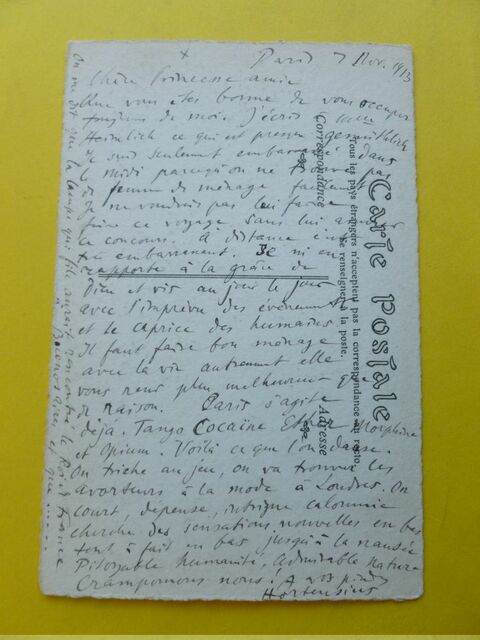 Paris 7 Nov. 1913
Chère Princesse amie
Que vous êtes bonne de vous occuper
toujours de moi. J'écris
Heimlich ce qui est presque gemüthlich
Je suis seulement embarrassé dans
le midi parce qu'on ne trouve pas
de femme de ménage facilement
Je ne voudrais pas lui faire
faire ce voyage sans lui
ce concours. à distance
embarrassant. Je m'en
rapporte à la grâce de
Dieu et vis au jour le jour
avec l'imprévu des événements
et le caprice des humains
Il faut faire bon ménage
avec la vie autrement elle
vous rend plus malheureux que
de raison. Paris s'agite
déjà. Tango Cocaïne Ether Morphine
et Opium. Voilà ce que l'on danse.
On triche au jeu, on va trouver les
avorteurs à la mode à Londres. On
court, dépense, intrigue calomnie
cherche des sensations nouvelles en bas
tout à fait en bas jusqu'à la nausée
Pitoyable humanité, admirable nature
Cramponnons nous! A vos pieds
Hortensius
On me dit que la lampe qui file aurait rencontré le Roi de France
à Buenos Aires et que ......
Carte Postale
Tous les pays étrangers n'acceptent pas la correspondance au recto
Se renseigner à la poste.
Correspondance
Adresse